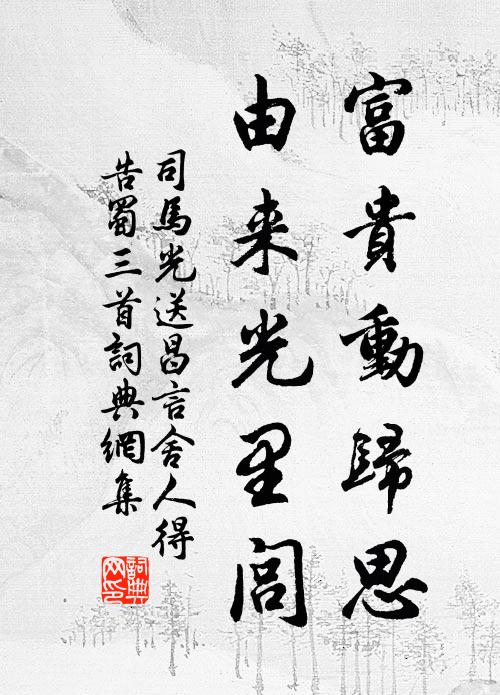 富貴動歸思
由来光里閭
司馬光送昌言舍人得
告蜀三首詞典網集
詞典网印